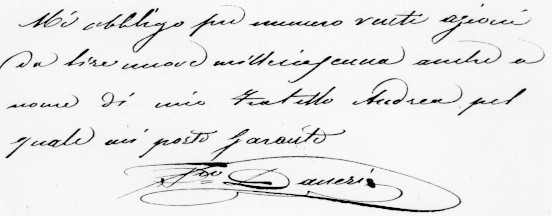 Mi obbligo per numero venti azioni
da lire nuove mille ciascuna anche a
nome di mio fratello Andrea pel
quale mi porto garante
Daneri